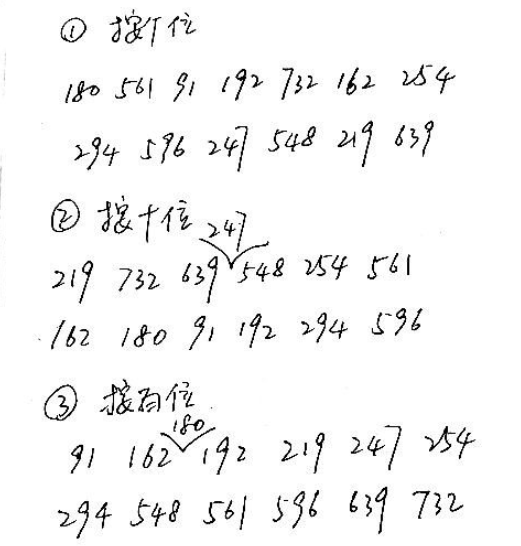 ① 按个位
180 561 91 192 732 162 254
294 596 247 548 219 639
② 按十位
247
219 732 639 548 254 561
162 180 91 192 294 596
③ 按百位
180
91 162 192 219 247 254
294 548 561 596 639 732